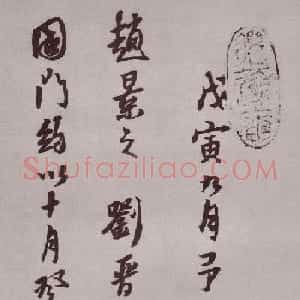 戊寅九月予
趙景之劉晋
國門約以十月
Shufaziliao.COM